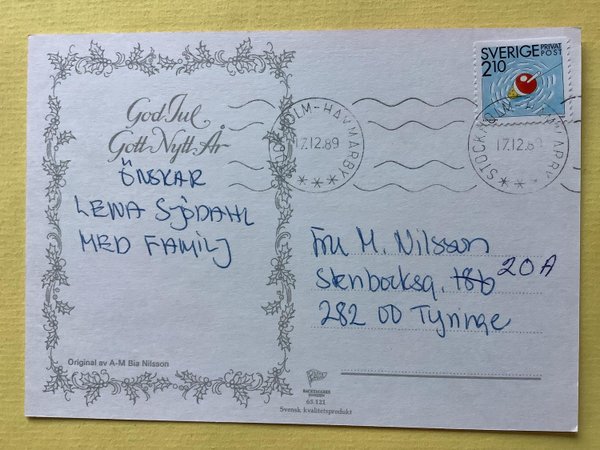 God Jul
Gott Nytt År
ÖNSKAR
LENA SJÖDAHL
MED FAMILJ
Original av A-M Bia Nilsson
SVERIGE PRIVAT POST
2.10
STOCKHOLM-HAMMARBY
17.12.89
STOCKHOLM-HAMMARBY
17.12.89
Fru M. Nilsson
Stenbocksg. 18b 20A
282 00 Tyringe
65.121
Svensk kvalitetsprodukt